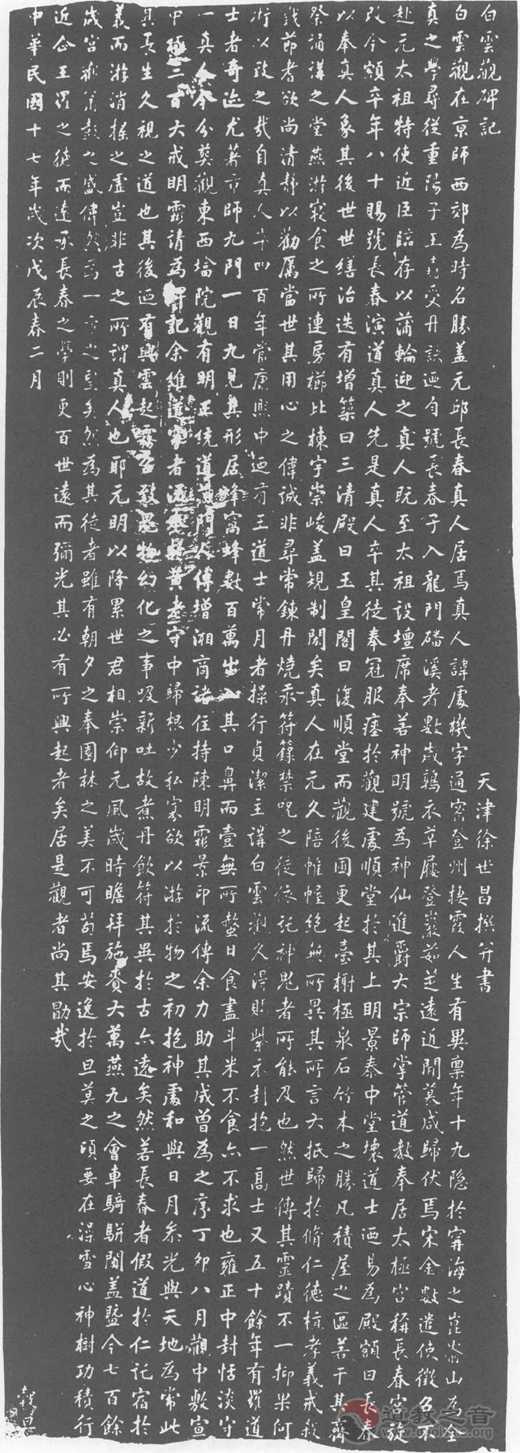 白雲觀碑記 天津徐世昌撰并書
白雲觀在京師西郊為時名勝蓋元邱長春真人居焉真人諱處機字通密登州棲霞人生有異稟年十九隱於寧海之崑崳山為全
真之學尋從重陽子王嚞受丹訣迺自號長春子入龍門磻溪者數歲鶉衣草屨登巖茹芝遠近聞慕咸歸伏焉宋金數遣使徵召不
赴元太祖特使近臣臨存以蒲輪迎之真人既至太祖設壇席奉若神明號為神仙進爵大宗師掌管道教奉居太極宮稱長春宮旋
改今額卒年八十賜號長春演道真人先是真人卒其徒奉冠服瘞於觀建處順堂於其上明景泰中堂壞道士迺易為殿額曰長春
以奉真人象其後世世繕治迭有增築曰三清殿曰玉皇閣曰復順堂而觀後園更起臺榭極泉石竹木之勝凡積屋之區若干其齋
祭誦講之堂燕游寢食之所連房櫛比棟宇崇峻蓋規制閎矣真人在元久陪帷幄絕無所異其所言大抵歸於脩仁德植孝義戒殺
戮節耆欲尚清靜以勸厲當世其用心之偉誠非尋常鍊丹燒汞符籙禁咒之徒依託神鬼者所能及也然世傳其靈蹟不一抑果何
術以致之哉自真人卒四百年當康熙中迺有王道士常月者操行貞潔主講白雲剎久得賜紫衣封抱一高士又五十餘年有羅道
士者奇迹尤著京師九門一日九見其形居蜂窩蜂數百萬出入其口鼻而壹無所螫日食盡斗米不食亦不求也雍正中封恬淡守
一真人今分葬觀東西墖院觀有明正統道藏傳增湘商諸住持陳明霦景印流傳余力助其成曾為之序丁卯八月觀中敷宣
中極三百大戒明霦請為碑記余雖道守中歸根少私寡欲以游於物之初抱神處和與日月參光與天地為常此
其長生久視之道也其後迺有興雲起霧幻化之事吸新吐故煮丹飲符其異於古亦遠矣然善長春者假道於仁託宿於
義而游逍搖之虛豈非古之所謂真人也耶元明以降累世君相崇仰元風歲時瞻拜施賚大萬燕九之會車騎駢闐蓋暨今七百餘
歲宮之盛偉然為一京之望矣然為其徒者雖有朝夕之奉園林之美不可苟焉安逸於旦莫之頃要在澡雪心神樹功積行
近念王羅之徒而遠承長春之學則更百世遠而彌光其必有所興起者矣居是觀者尚其勖哉
中華民國十七年歲次戊辰春二月
道教之音